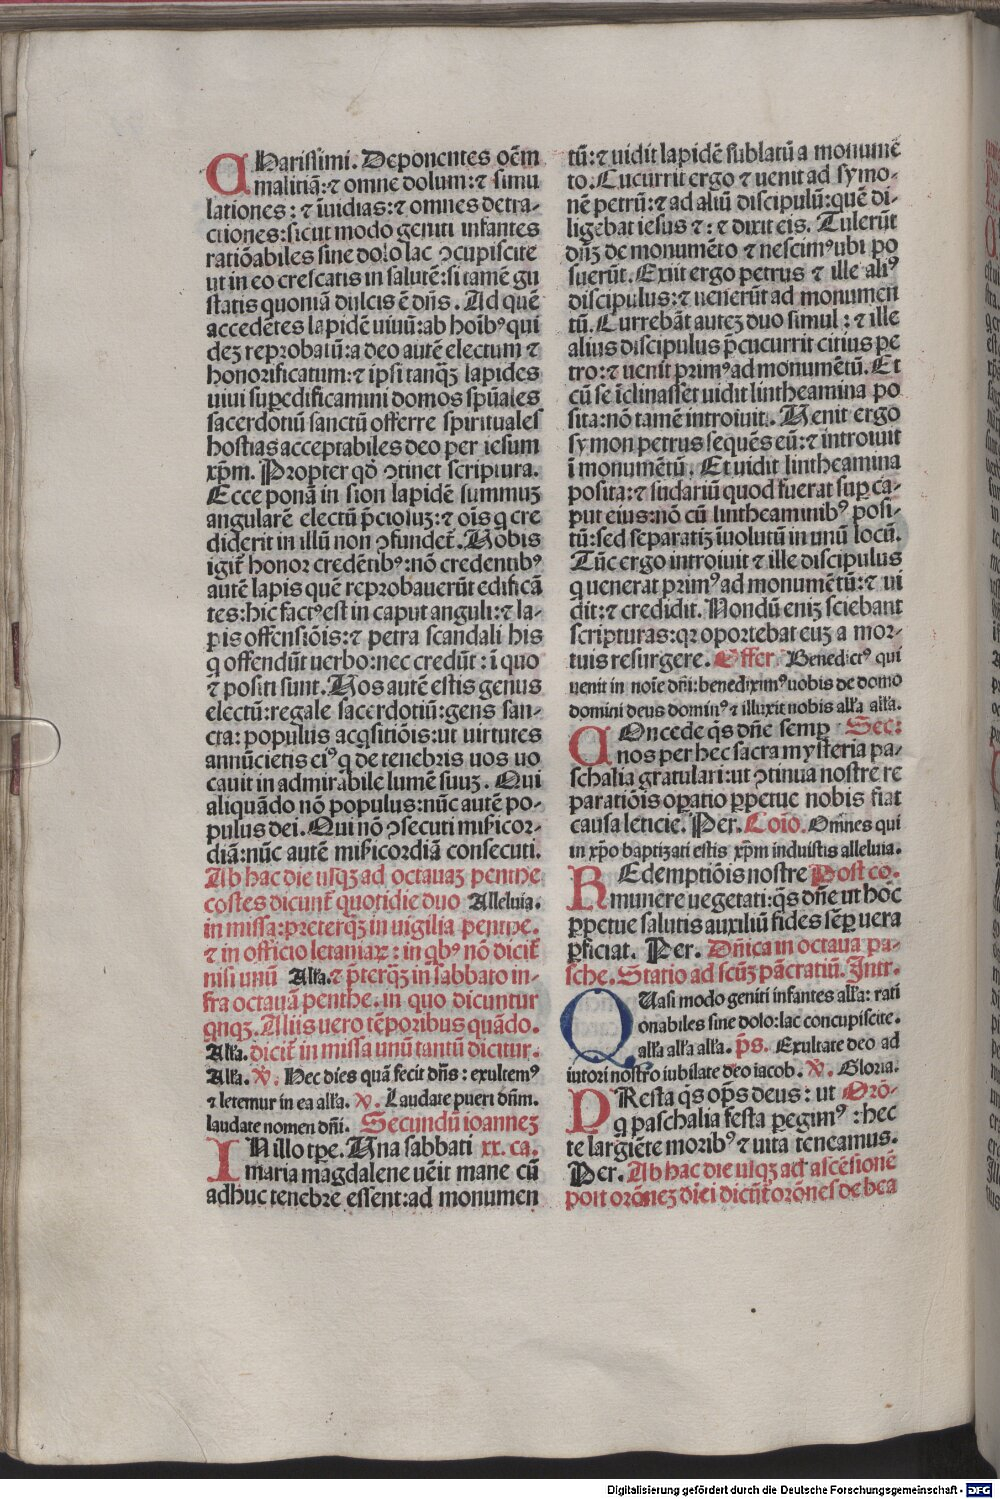 CHarissimi. Deponentes oēm
malitiā: ⁊ omne dolum: ⁊ simu
lationes: ⁊ īuidias: ⁊ omnes detra-
ctiones: sicut modo geniti infantes
ratiōabiles sine dolo lac ꝯcupiscite
ut in eo crescatis in salutē: si tamē gu
statis quoniā dulcis ē dñs. Ad quē
accedētes lapidē uiuū: ab hoībꝰ qui
dez reprobatū: a deo autē electum ⁊
honorificatum: ⁊ ipsi tanqȝ lapides
uiui suꝑedificamini domos spūales
sacerdotiū sanctū offerre spirituales
hostias acceptabiles deo per iesum
xp̄m. Propter qd̄ ꝯtinet scriptura.
Ecce ponā in sion lapidē summuȝ
angularē electū p̄ciosuȝ: ⁊ oīs q cre
diderit in illū non ꝯfundet̄. Uobis
igit̄ honor credētibꝰ: nō credentibꝰ
autē lapis quē reprobauerūt edificā
tes: hic factꝰ est in caput anguli: ⁊ la-
pis offensiōis: ⁊ petra scandali his
q offendūt uerbo: nec credūt: ī quo
⁊ positi sunt. Uos autē estis genus
electū: regale sacerdotiū: gens san-
cta: populus acqsitiōis: ut uirtutes
annūcietis eiꝰ q de tenebris uos uo
cauit in admirabile lumē suuȝ. Qui
aliquādo nō populus: nūc autē po-
pulus dei. Qui nō ꝯsecuti misicor-
diā: nūc autē misicordiā consecuti.
Ab hac die usqȝ ad octauaȝ penthe
costes dicunt̄ quotidie duo Alleluia.
in missa: preterqȝ in uigilia penthe.
⁊ in officio letaniaꝝ: in qbꝰ nō dicit̄
nisi unū Alľa. ⁊ p̄terqȝ in sabbato in-
fra octauā penthe. in quo dicuntur
qnqȝ. Aliis uero tēporibus quādo.
Alľa. dicit̄ in missa unū tantū dicitur.
Alľa. ℣. Hec dies quā fecit dñs: exultemꝰ
⁊ letemur in ea alľa. ℣. Laudate pueri dñm.
laudate nomen dñi. Secundū ioanneȝ
IN illo tp̄e. Una sabbati xx. ca.
maria magdalene uēit mane cū
adhuc tenebre essent: ad monumen
tū: ⁊ uidit lapidē sublatū a monumē
to. Cucurrit ergo ⁊ uenit ad symo-
nē petrū: ⁊ ad aliū discipulū: quē di-
ligebat iesus ⁊: ⁊ dixit eis. Tulerūt
dñȝ de monumēto ⁊ nescimꝰ ubi po
suerūt. Exiit ergo petrus ⁊ ille aliꝰ
discipulus: ⁊ uenerūt ad monumen
tū. Currebāt auteȝ duo simul: ⁊ ille
alius discipulus p̄cucurrit citius pe
tro: ⁊ uenit primꝰ ad monumētū. Et
cū se īclinasset uidit lintheamina po
sita: nō tamē introiuit. Uenit ergo
symon petrus sequēs eū: ⁊ introiuit
ī monumētū. Et uidit lintheamina
posita: ⁊ sudariū quod fuerat suꝑ ca-
put eius: nō cū lintheaminibꝰ posi-
tū: sed separatiȝ īuolutū in unū locū.
Tūc ergo introiuit ⁊ ille discipulus
q uenerat primꝰ ad monumētū: ⁊ ui
dit: ⁊ credidit. Nondū eniȝ sciebant
scripturas: qꝛ oportebat euȝ a mor-
tuis resurgere. Offer. Benedictꝰ qui
uenit in noīe dñi: benediximꝰ uobis de domo
domini deus dominꝰ ⁊ illuxit nobis alľa alľa.
COncede qs dñe semꝑ Sec:
nos per hec sacra mysteria pa-
schalia gratulari: ut ꝯtinua nostre re
paratiōis oꝑatio ꝑpetue nobis fiat
causa leticie. Per. Coīo. Omnes qui
in xp̄o baptizati estis xp̄m induistis alleluia.
REdemptiōis nostre Post co.
munere uegetati: qs dñe ut hoc
ꝑpetue salutis auxiliū fides sēꝑ uera
ꝓficiat. Per. Dñica in octaua pa-
sche. Statio ad scūȝ pācratiū. Intr.
QUasi modo geniti infantes alľa: rati
onabiles sine dolo: lac concupiscite.
alľa alľa alľa. p̄s. Exultate deo ad
iutori nostro iubilate deo iacob. ℣. Gloria.
PResta qs op̄s deus: ut Orō-
q paschalia festa ꝑegimꝰ: hec
te largiēte moribꝰ ⁊ uita teneamus.
Per. Ab hac die usqȝ ad ascēsionē
post orōneȝ diei dicūt̄ orōnes de bea
Digitalisierung gefördert durch die Deutsche Forschungsgemeinschaft - DFG